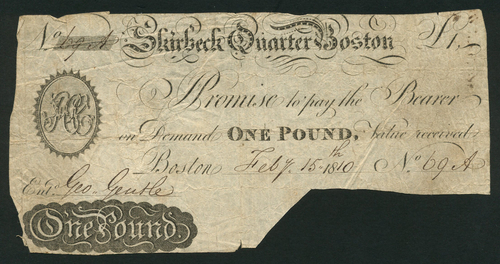 No. 69 A Skirbeck Quarter Boston £1
I Promise to pay the Bearer
on Demand ONE POUND, Value received
Boston Feby. 15th 1810 No. 69 A
Entd. Geo. Gentle
One Pound.